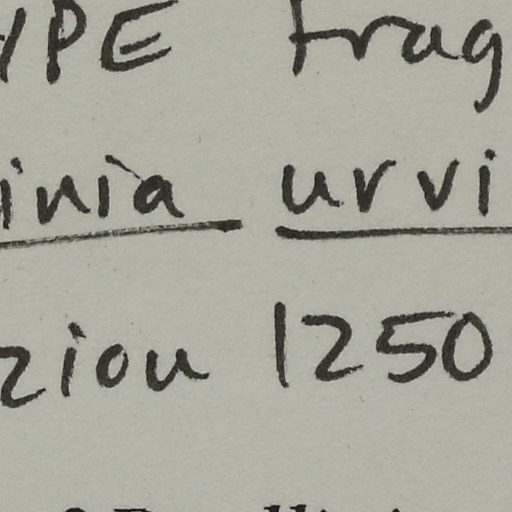 YPE frag
inia urvi
ziou 1250